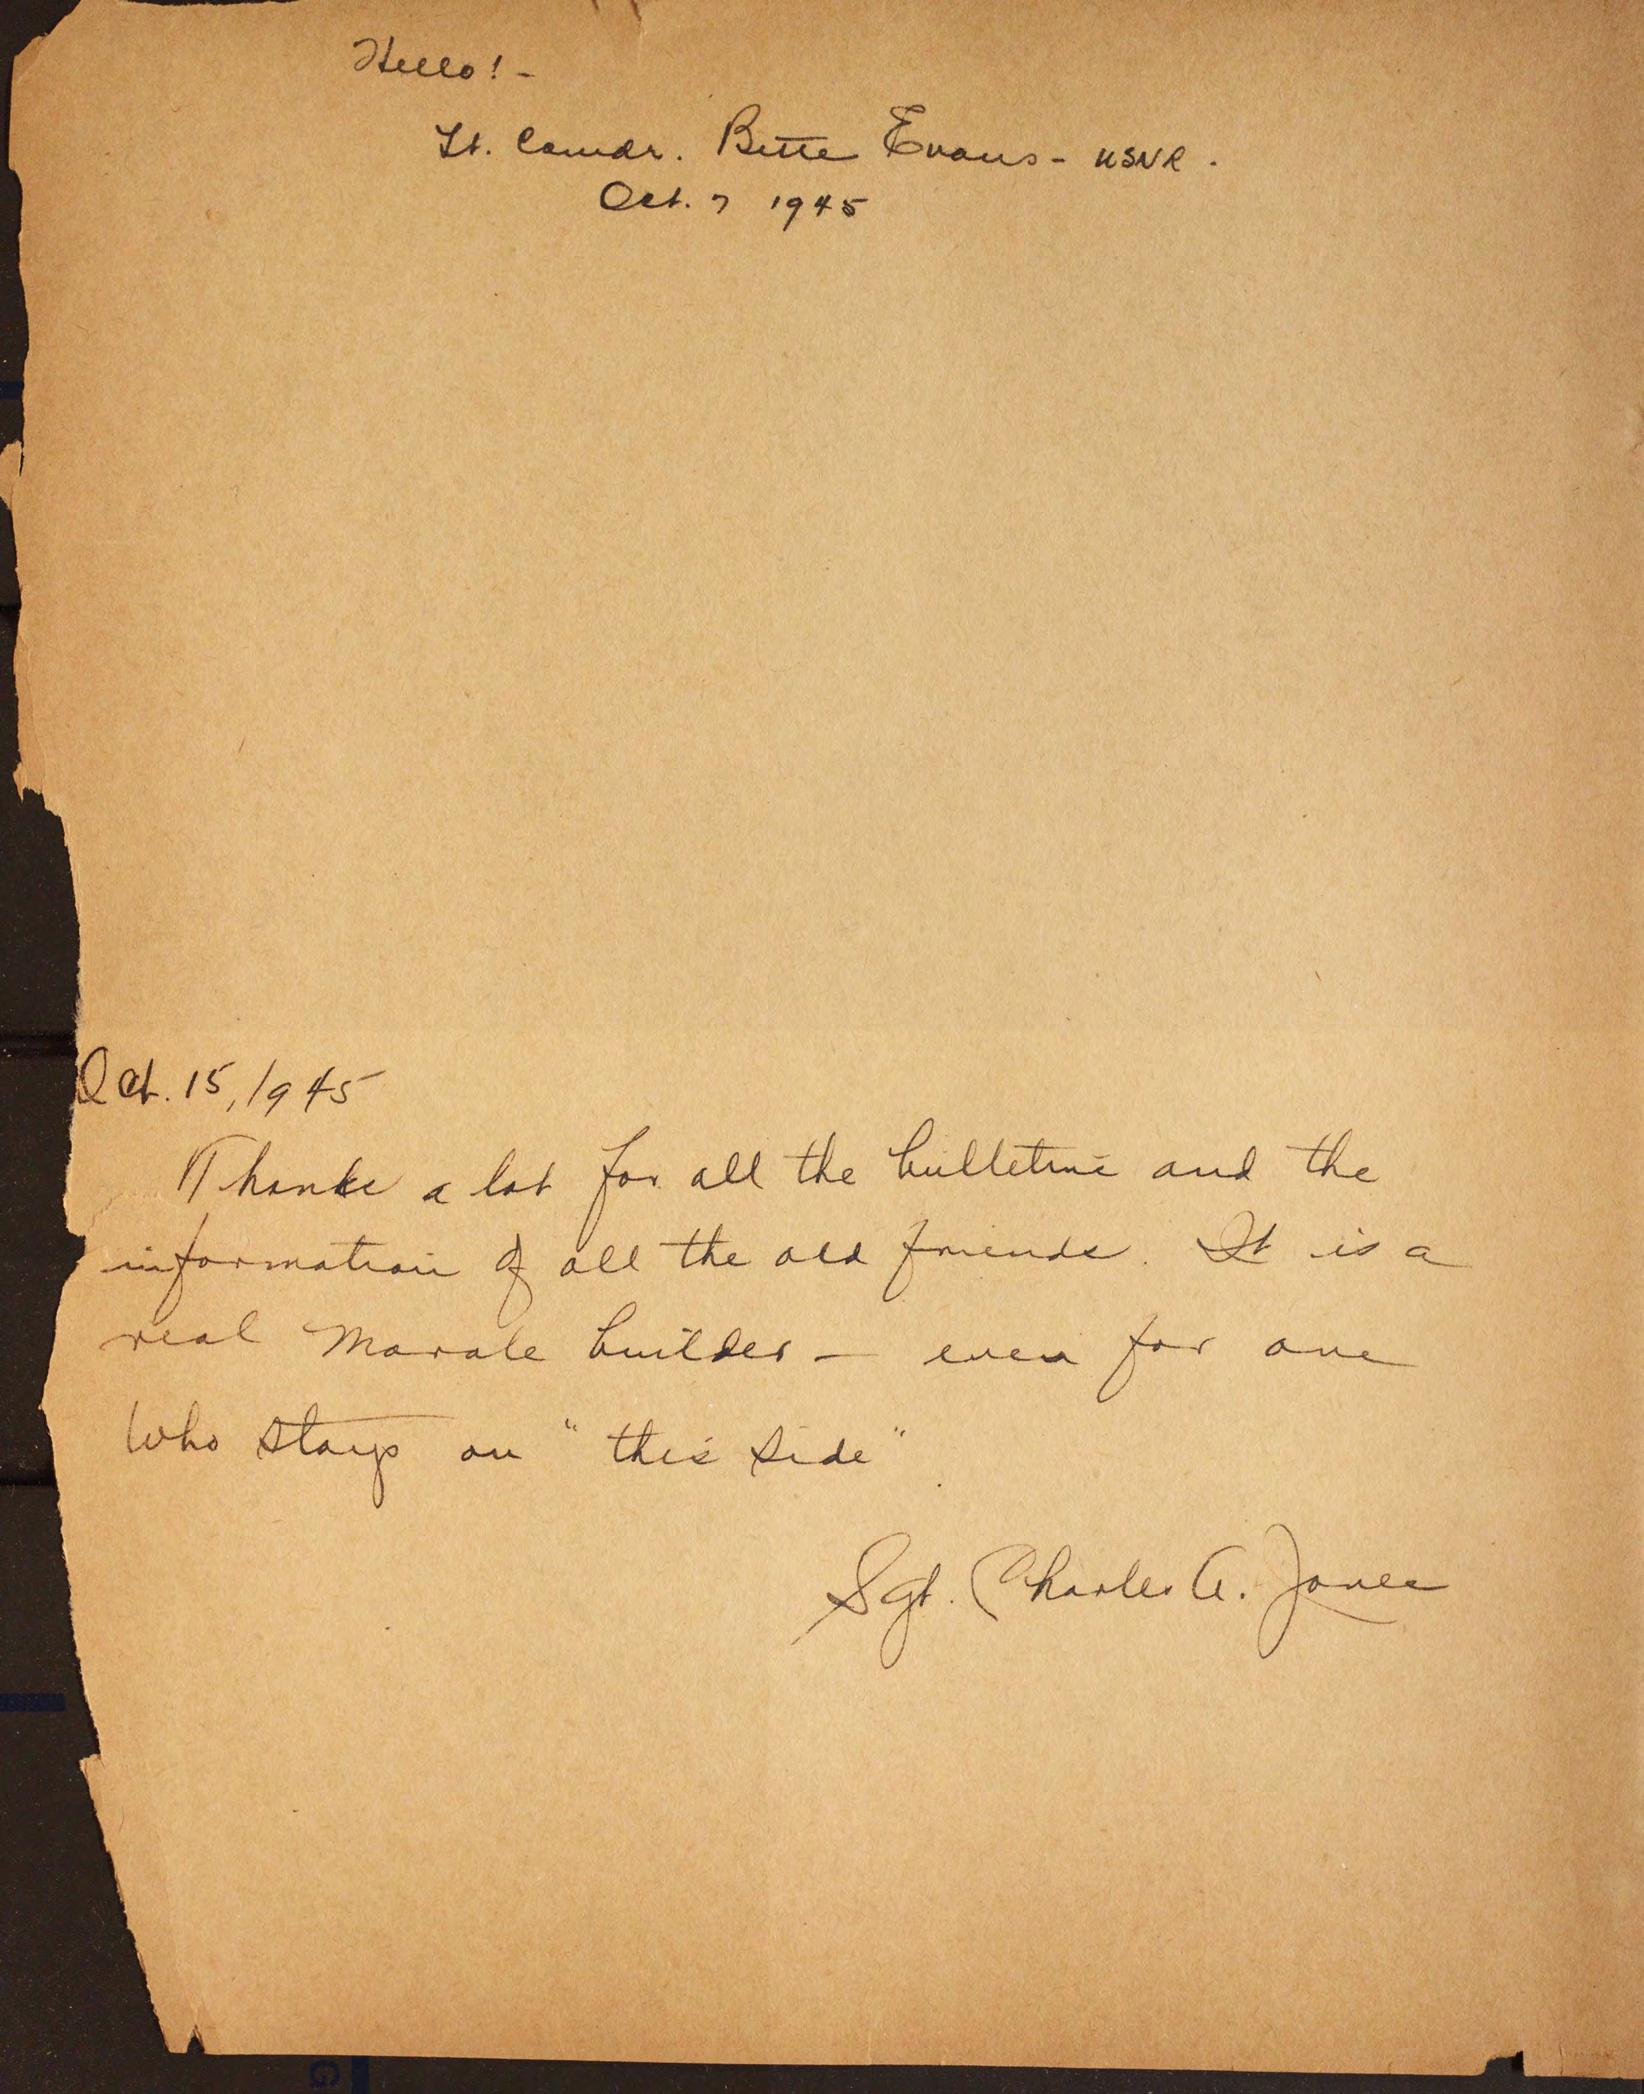 Hello! -
Lt. Comdr. Bette Evans - USNR.
Oct. 7 1945
Oct. 15, 1945
Thanks a lot for all the bulletins and the
information of all the old friends. It is a
real Morale builder — even for one
who stays on "this side".
Sgt. Charles A. Jones
G